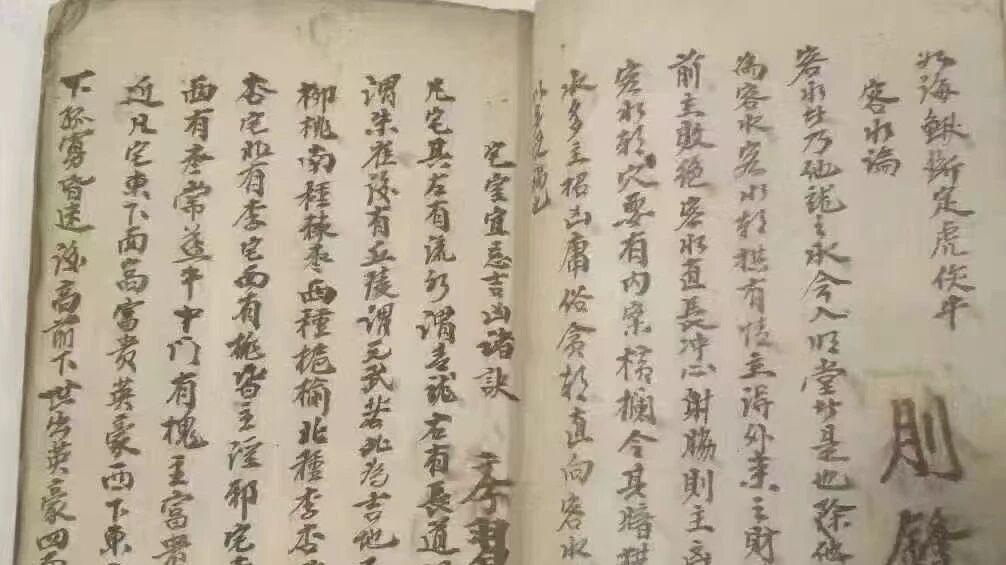 如海鰍斬定虎伏牛
客水論
客水者乃他龍之水今入明堂者是也除
為客水客水朝拱有情主得外來之財
前主敗絕客水直長冲心射脇則主
客水於穴要有内案横欄令其暗拱
水多主招凶庸俗貪於直向客水
則
宅室宜忌吉凶諸訣
凡宅其左有流水謂青龍右有長道
謂朱雀後有丘陵謂元武若此為吉地
柳桃南種棘棗西種梔榆北種李杏
杏宅北有李宅西有桃皆主淫邪宅
西有棗常益牛中门有槐主富貴
近凡宅東下面高富貴英豪西下東
下孤寡昏迷後高前下世出英豪四